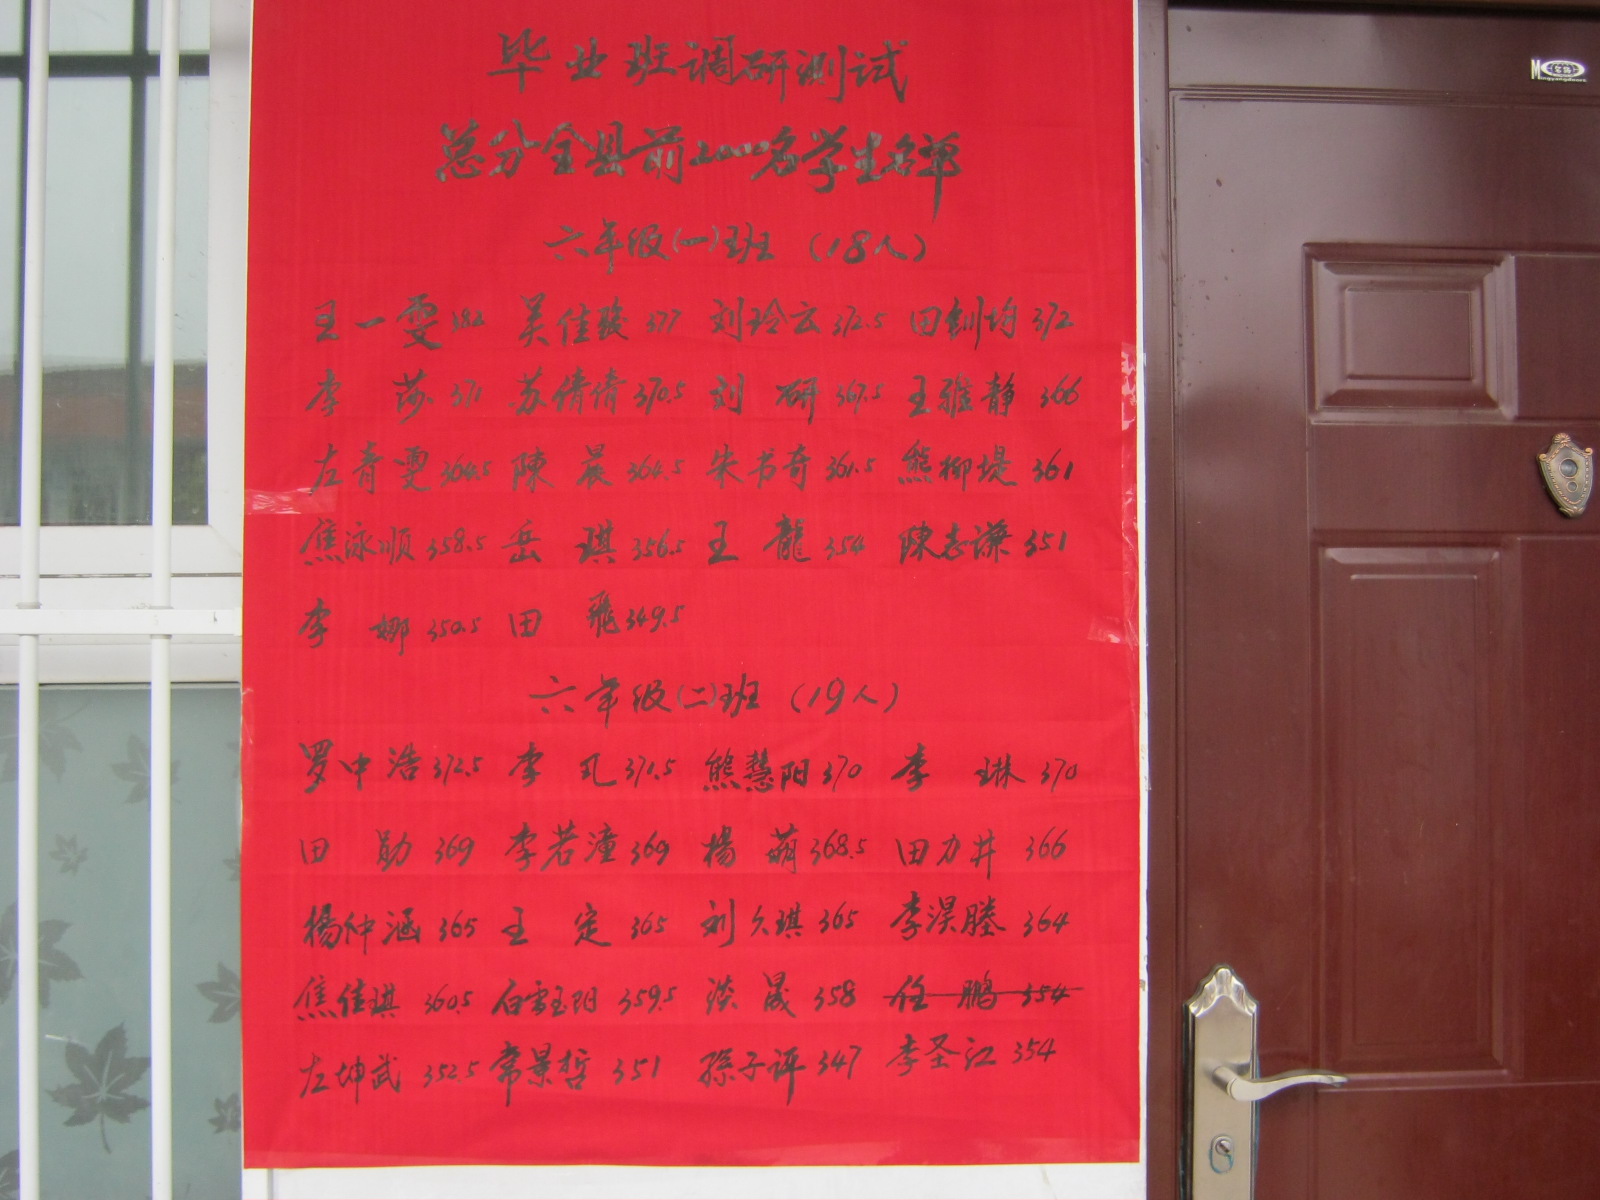 毕业班调研测试
总分全县前2000名学生名单
六年级(一)班 (18人)
王一雯382 吴佳骏377 刘玲云372.5 田钊均372
李莎371 苏倩倩370.5 刘研367.5 王雅静366
左青雯364.5 陳晨364.5 朱书奇361.5 熊柳堤361
焦泳顺358.5 岳琪356.5 王龍354 陳志谦351
李娜350.5 田飛349.5
六年级(二)班 (19人)
罗中浩372.5 李凡371.5 熊慧阳370 李琳370
田勋369 李若潼369 楊萌368.5 田力井366
楊仲涵365 王定365 刘久琪365 李淏塍364
焦佳琪360.5 白雪阳359.5 淡晟358 任鹏354
左坤武352.5 常景哲351 孫子评347 李圣江354
M
Mingyangdoors